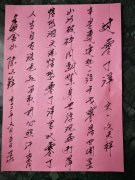 过零丁洋 宋 文天祥
辛苦遭逢起一经干戈寥落四周星
山河破碎风飘絮身世浮沉雨打
萍惶恐滩头说惶恐零丁洋里叹零丁
人生自古谁无死留取丹心照汗青